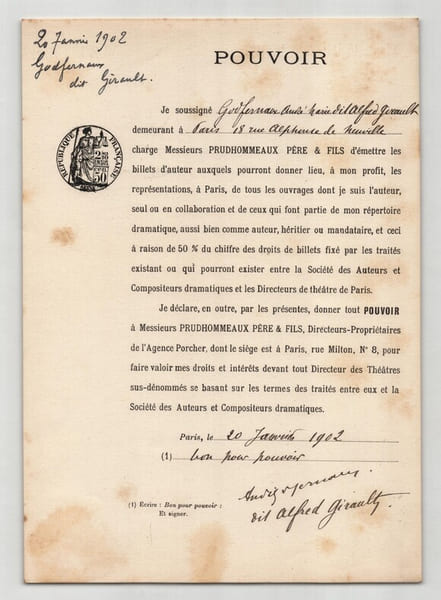 20 Janvier 1902
Godfernaux
dit Girault.
POUVOIR
Je soussigné Godfernaux André Marie dit Alfred Girault
demeurant à Paris 18 rue Alphonse de Neuville
charge Messieurs PRUDHOMMEAUX PÈRE & FILS d'émettre les
billets d'auteur auxquels pourront donner lieu, à mon profit, les
représentations, à Paris, de tous les ouvrages dont je suis l'auteur,
seul ou en collaboration et de ceux qui font partie de mon répertoire
dramatique, aussi bien comme auteur, héritier ou mandataire, et ceci
à raison de 50 % du chiffre des droits de billets fixé par les traités
existant ou qui pourront exister entre la Société des Auteurs et
Compositeurs dramatiques et les Directeurs de théâtre de Paris.
Je déclare, en outre, par les présentes, donner tout POUVOIR
à Messieurs PRUDHOMMEAUX PÈRE & FILS, Directeurs-Propriétaires
de l'Agence Porcher, dont le siège est à Paris, rue Milton, N° 8, pour
faire valoir mes droits et intérêts devant tout Directeur des Théâtres
sus-dénommés se basant sur les termes des traités entre eux et la
Société des Auteurs et Compositeurs dramatiques.
Paris, le 20 Janvier 1902
(1) bon pour pouvoir
André Godfernaux.
dit Alfred Girault
(1) Écrire : Bon pour pouvoir :
Et signer.
RÉPUBLIQUE FRANÇAISE